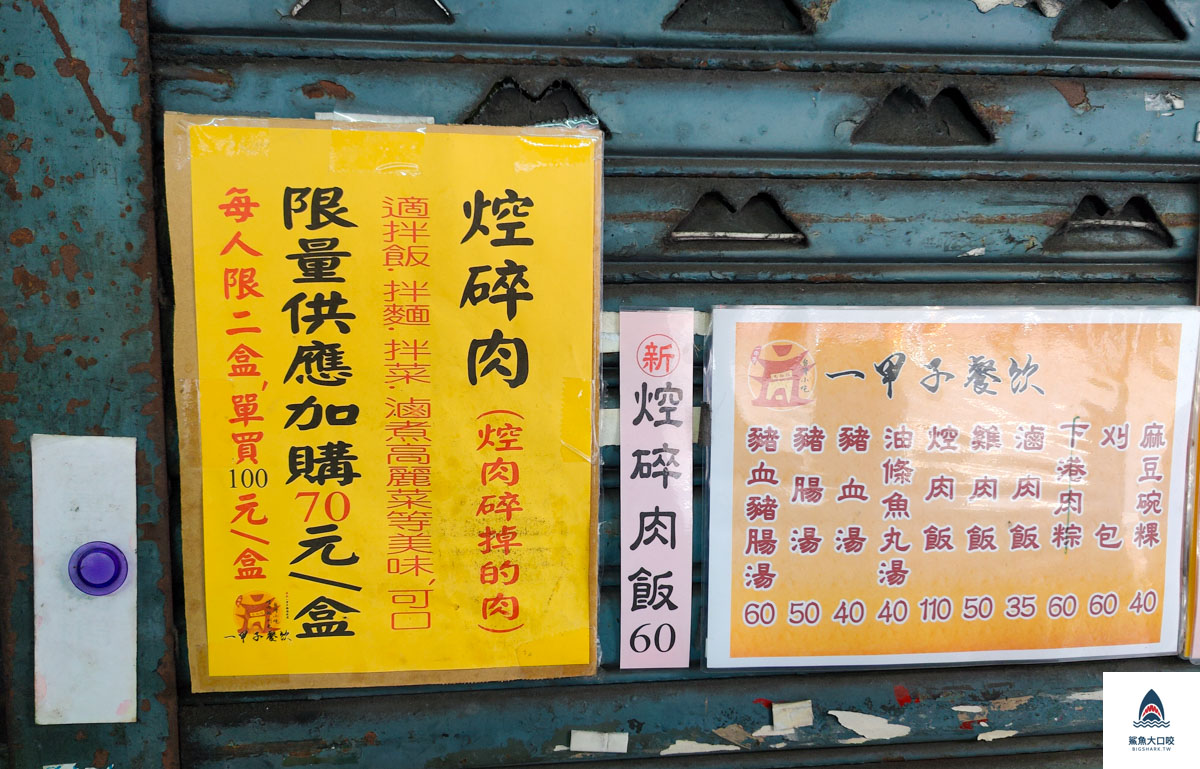 焢碎肉(焢肉碎掉的肉)
適拌飯.拌麵.拌菜.滷煮高麗菜等美味,可口
限量供應加購70元/盒
每人限二盒,單買100元/盒
一甲子餐飲
新焢碎肉飯60
一甲子餐飲
麻豆碗粿40
刈包60
下港肉粽60
滷肉飯35
雞肉飯50
焢肉飯110
油條魚丸湯40
豬血湯40
豬腸湯50
豬血豬腸湯60
鯊魚大口咬
BIGSHARK.TW